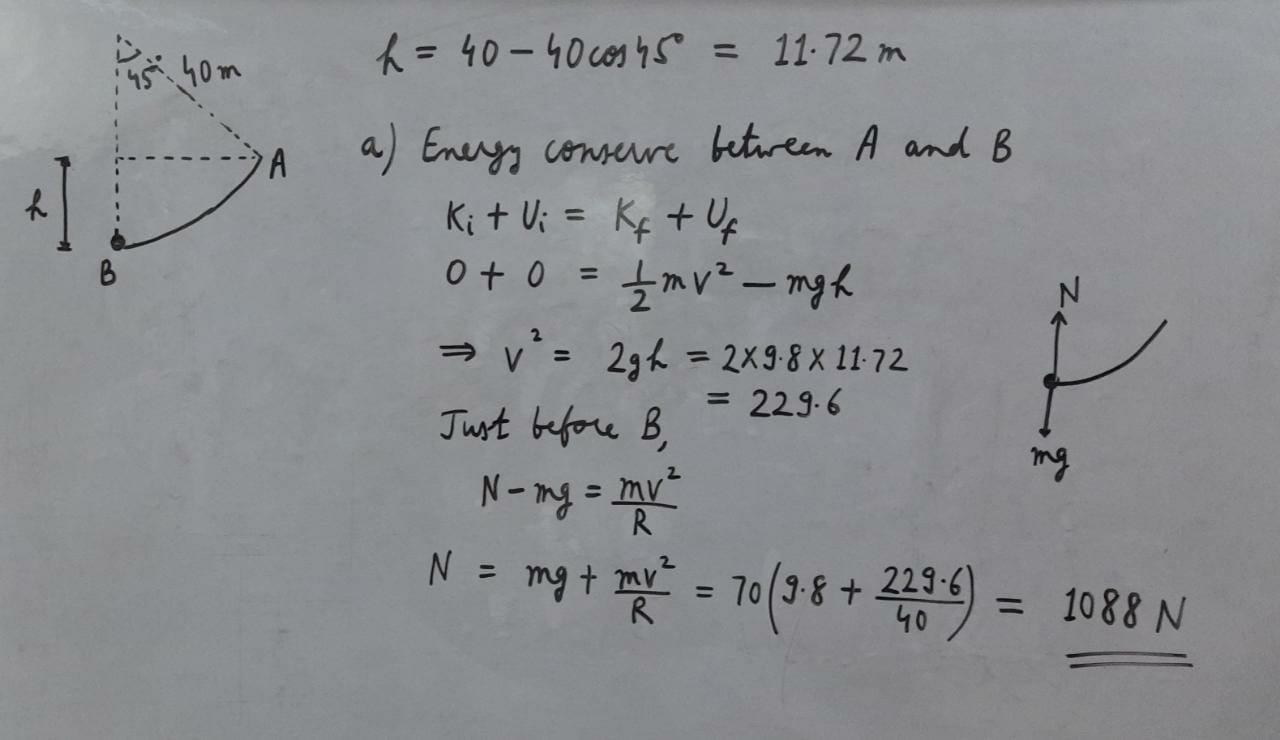 h = 40 − 40cos45° = 11.72 m
45° 40m
A
h
B
a) Energy conserve between A and B
Ki + Ui = Kf + Uf
0 + 0 = 1/2 mv² − mgh
⇒ v² = 2gh = 2×9.8×11.72
= 229.6
Just before B,
N − mg = mv²/R
N
mg
N = mg + mv²/R = 70(9.8 + 229.6/40) = 1088 N